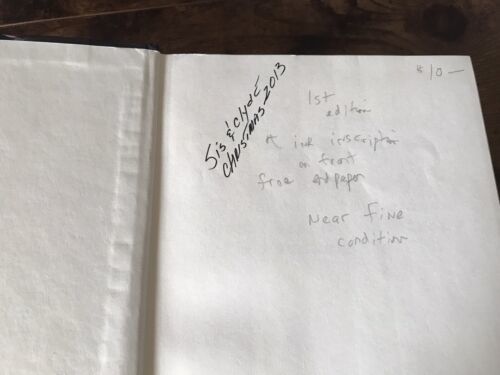 Sis & Clyde
Christmas 2013
$10—
1st
edition
ink inscription
on front
free endpaper
Near Fine
condition